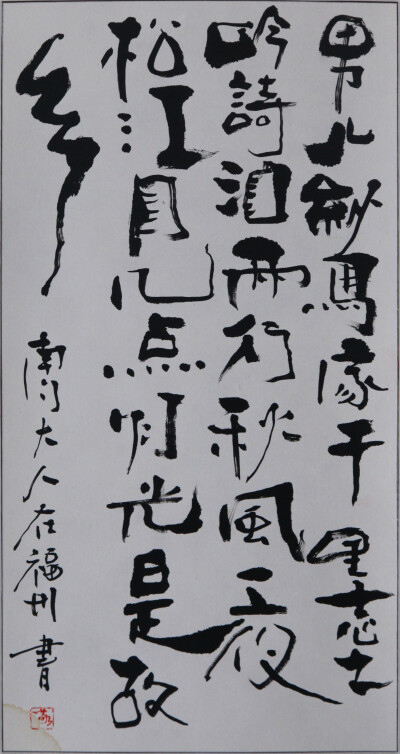 男儿劍馬家千里志士
吟詩泪兩行秋風一夜
松江月几点灯光是故
乡
南门大人在福州書